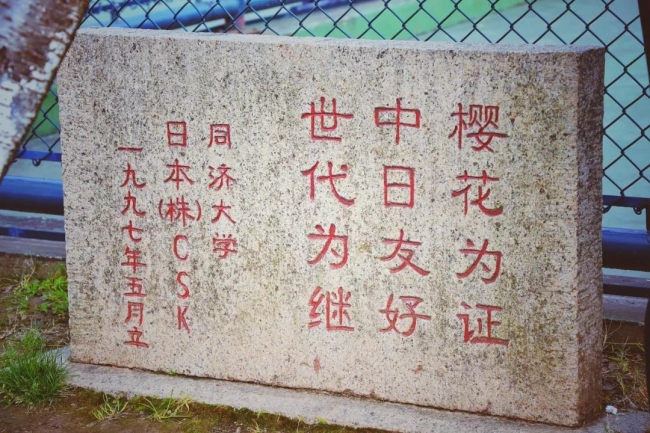 樱花为证
中日友好
世代为继
同济大学
日本(株)CSK
一九九七年五月立